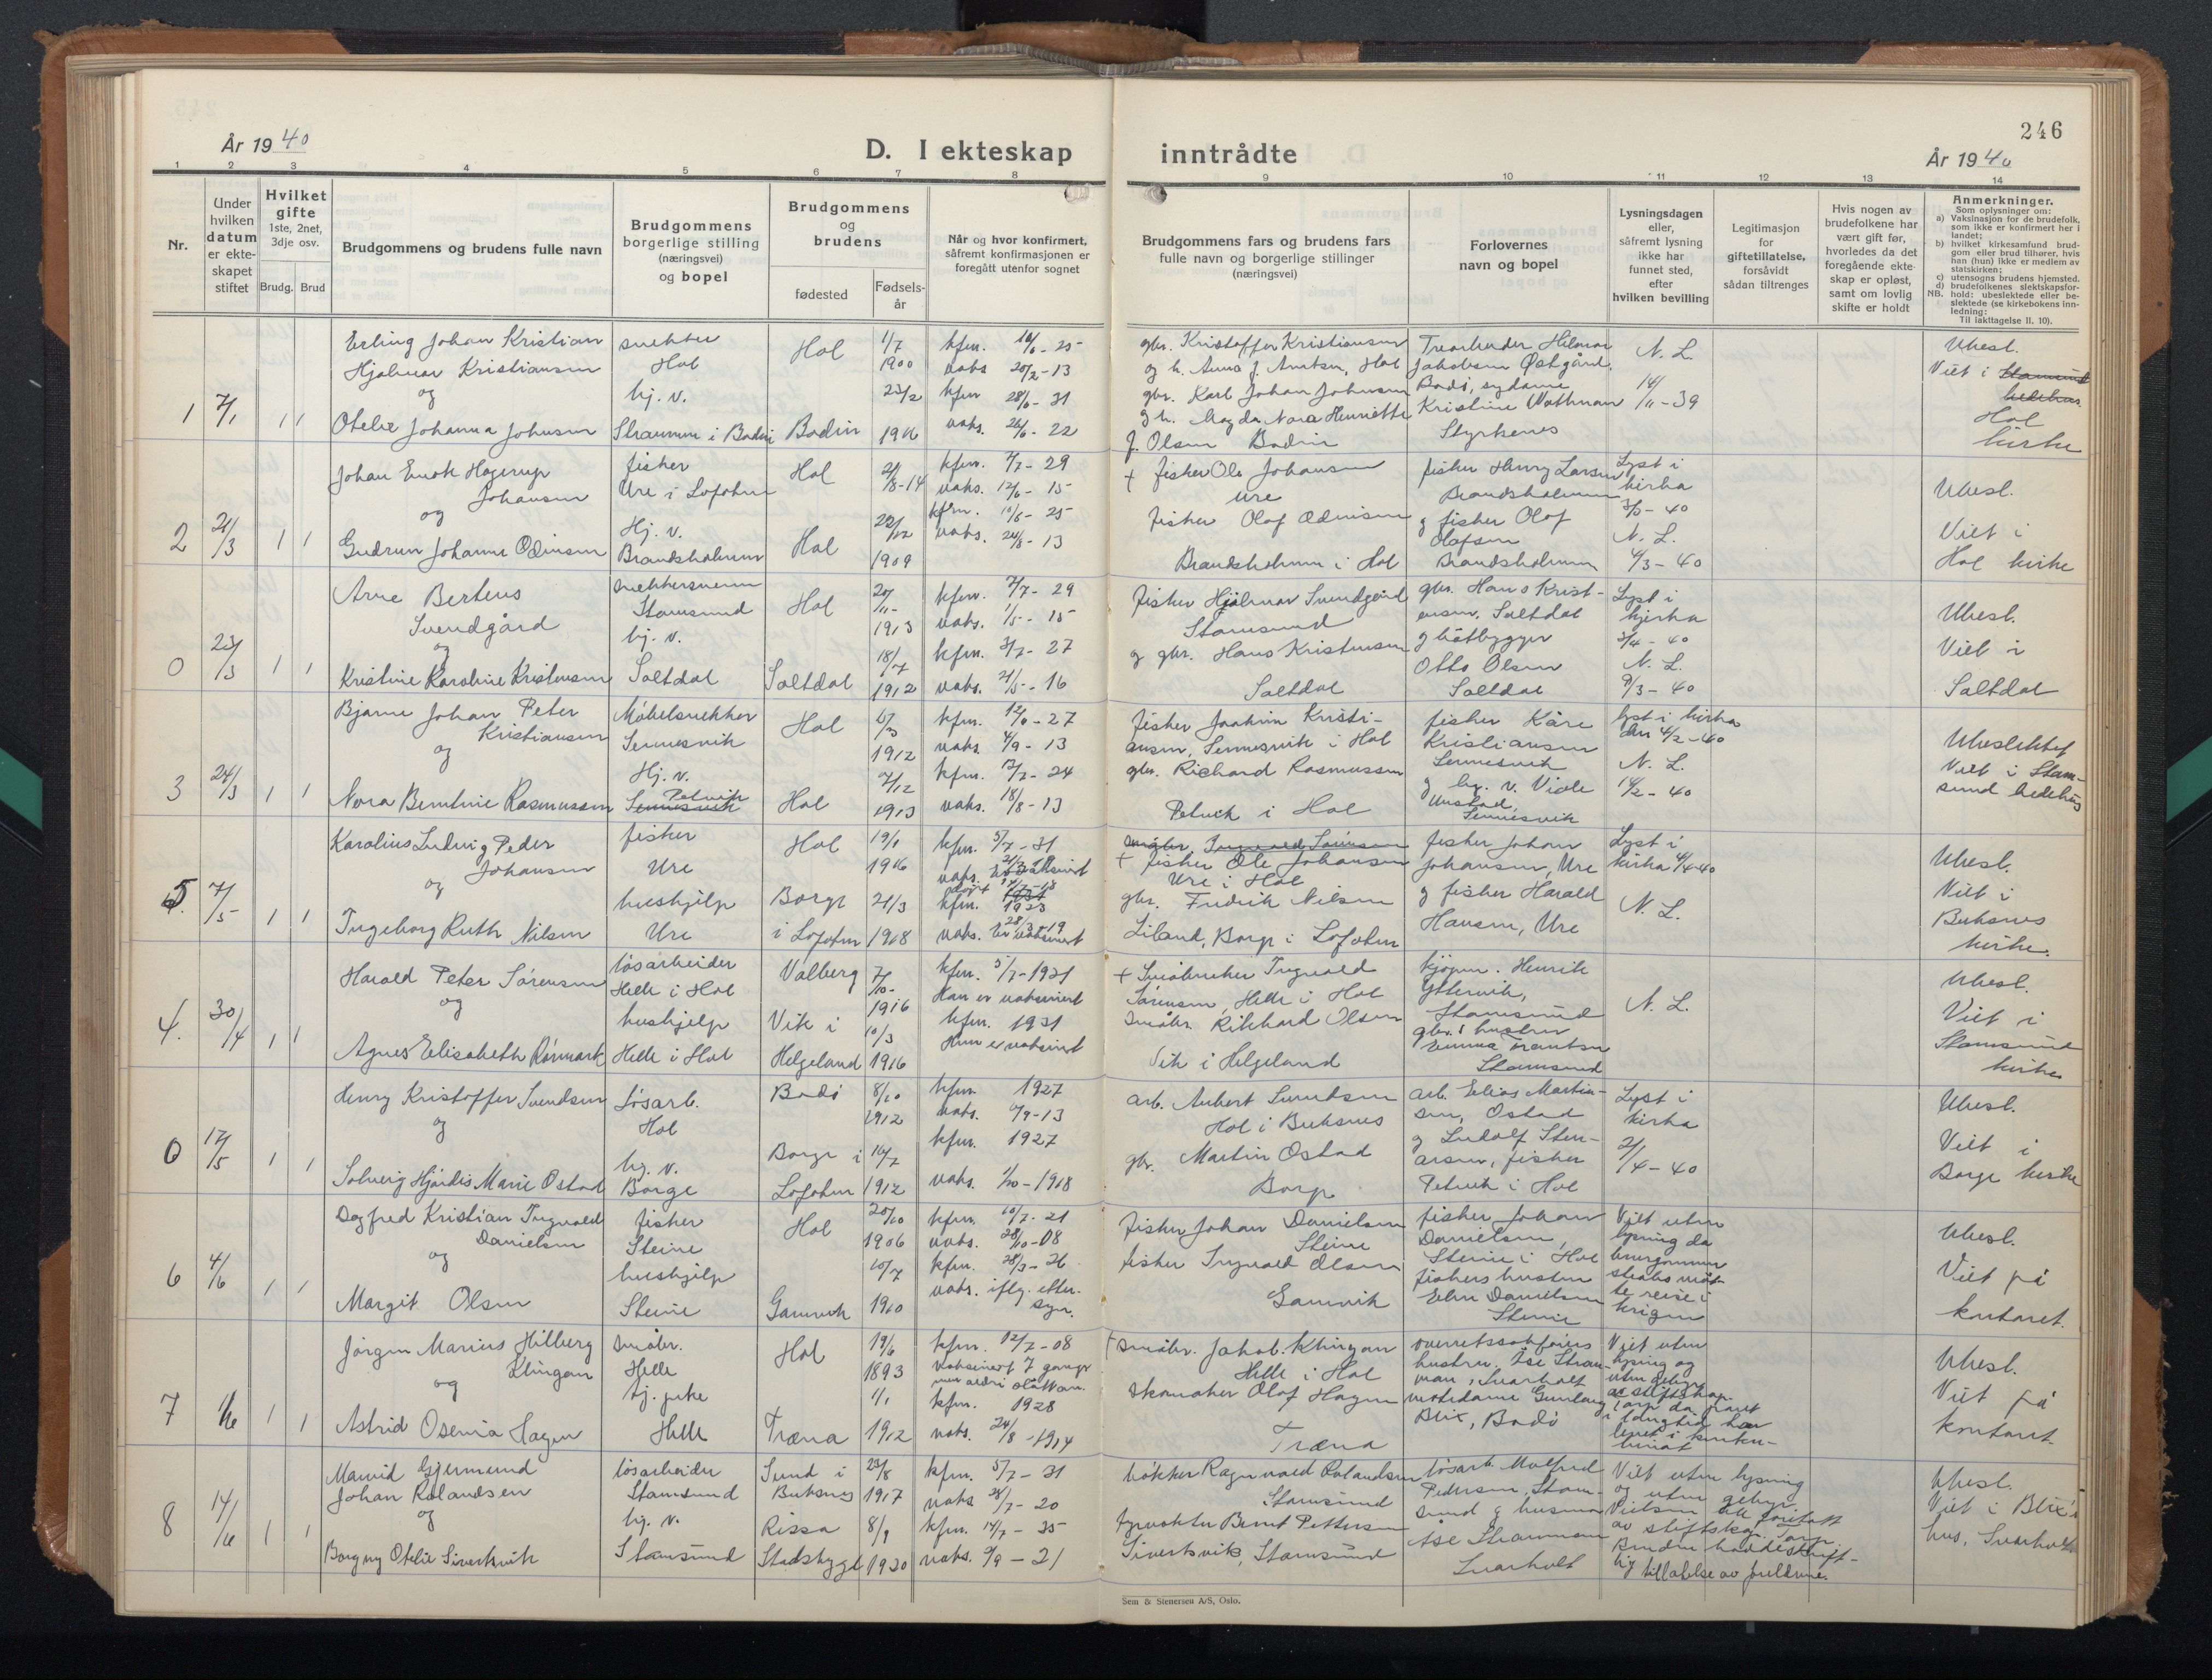 246
År 1940
D. I ekteskap
inntrådte
År 1940
1 2 3 4 5 6 7 8 9 10 11 12 13 14
Nr.
Under
hvilken
datum
er ekte-
skapet
stiftet
Hvilket
gifte
1ste, 2net,
3dje osv.
Brudg. Brud
Brudgommens og brudens fulle navn
Brudgommens
borgerlige stilling
(næringsvei)
og bopel
Brudgommens
og
brudens
fødested
Fødsels-
år
Når og hvor konfirmert,
såfremt konfirmasjonen er
foregått utenfor sognet
Brudgommens fars og brudens fars
fulle navn og borgerlige stillinger
(næringsvei)
Forlovernes
navn og bopel
Lysningsdagen
eller,
såfremt lysning
ikke har
funnet sted,
efter
hvilken bevilling
Legitimasjon
for
giftetillatelse,
forsåvidt
sådan tiltrenges
Hvis nogen av
brudefolkene har
vært gift før,
hvorledes da det
foregående ekte-
skap er opløst,
samt om lovlig
skifte er holdt
Anmerkninger.
Som oplysninger om:
a) Vaksinasjon for de brudefolk,
som ikke er konfirmert her i
landet;
b) hvilket kirkesamfund brud-
gom eller brud tilhører, hvis
han (hun) ikke er medlem av
statskirken;
c) utensogns brudens hjemsted.
d) brudefolkenes slektskapsfor-
NB. hold: ubeslektede eller be-
slektede (se kirkebokens inn-
ledning:
Til iakttagelse II. 10).
1 7/1 1 1
Erling Johan Kristian
Hjalmar Kristiansen
og
Otelie Johanna Johnsen
snekker
Hol
hj. v.
Straumen i Bodin
Hol
Bodin
1/7
1900
23/2
1916
kfm. 14/6 - 25
vaks 20/2 - 13
kfm 28/6 - 31
vaks. 26/6 - 22
gbr. Kristoffer Kristiansen
og h. Anna J. Arntsen, Hol
gbr. Karl Johan Johnsen
og h. Magda Nora Henriette
J. Olsen Bodin
Trearbeider Hilmar
Jakobsen Østgård,
Bodø, sydame
Kristine Wathman
Styrkenes
N. L.
14/11 - 39
Ubesl.
Viet i Stamsund
bedehus
Hol
kirke
2 21/3 1 1
Johan Enok Hagerup
Johansen
og
Gudrun Johanne Odinsen
fisker
Ure i Lofoten
Hj. v.
Brandsholmen
Hol
Hol
21/8-14
22/12
1909
kfm. 7/7 - 29
vaks. 12/6 - 15
kfm. 14/6 - 25
vaks. 24/8 - 13
+ fisker Ole Johansen
Ure
fisker Olaf Odinsen
Brandsholmen i Hol
fisker Henry Larsen
Brandsholmen
g fisker Olof
Olofsen
Brandsholmen
Lyst i
kirka
3/3 - 40
N. L.
4/3 - 40
Ubesl.
Viet i
Hol kirke
0 23/3 1 1
Arne Bertens
Svendgård
og
Kristine Karoline Kristensen
snekkersvenn
Stamsund
hj. v.
Saltdal
Hol
Saltdal
27/11-
1913
18/7
1912
kfm. 7/7 - 29
vaks. 1/5 - 15
kfm. 3/7 - 27
vaks. 21/5 - 16
fisker Hjalmar Svendgård
Stamsund
g gbr. Hans Kristensen
Saltdal
gbr. Hans Krist-
ensen. Saltdal
g båtbygger
Otto Olsen
Saltdal
Lyst i
kjerka
3/4 - 40
N. L.
9/3 - 40
Ubesl.
Viet i
Saltdal
3 24/3 1 1
Bjarne Johan Peter
Kristiansen
og
Nora Berntine Rasmussen
Møbelsnekker
Sennesvik
Hj. v.
Petvik
Sennesvik
Hol
Hol
6/3
1912
7/12
1913
kfm. 12/6 - 27
vaks 4/9 - 13
kfm. 13/7 - 24
vaks. 18/8 - 13
fisker Joakim Kristi-
ansen, Sennesvik i Hol
gbr. Richard Rasmussen
Petvik i Hol
fisker Kåre
Kristiansen
Sennesvik
g hj. v. Viole
Unstad,
Sennesvik
lyst i kirka
den 4/2 - 40
N. L.
14/2 - 40
Ubeslektet
Viet i Stam-
sund bedehus
5. 7/5 1 1
Karolius Ludvig Peder
Johansen
og
Ingeborg Ruth Nilsen
fisker
Ure
hushjelp
Ure
Hol
Borge
i Lofoten
19/1
1916
21/3
1918
kfm. 5/7 - 31
vaks.
kfm. 1923
vaks. 28/3-19
Er vaksinert
småbr. Ingvald Sørensen
+ fisker Ole Johansen
Ure i Hol
gbr. Fredrik Nilsen
Liland, Borge i Lofoten
fisker Johan
Johansen, Ure
g fisker Harald
Hansen, Ure
Lyst i
kirka 4/4-40
N. L.
Ubesl.
Viet i
Buksnes
kirke.
4. 30/4 1 1
Harald Peter Sørensen
og
Agnes Elisabeth Rønmark
løsarbeider
Helle i Hol
hushjelp
Helle i Hol
Valberg
Vik i
Helgeland
7/10-
1916
10/3
1916
kfm. 5/7 - 1931
Han er vaksinert
kfm. 1931
Hun er vaksinert
+ Småbruker Ingvald
Sørensen, Helle i Hol
småbr. Rikhard Olsen
Vik i Helgeland
kjøpm. Henrik
Yttervik,
Stamsund
Emma Frantsen
Stamsund
N. L.
Ubesl.
Viet i
Stamsund
kirke
0 12/5 1 1
Henry Kristoffer Svendsen
og
Solveig Hjørdis Marie Ostad
Løsarb.
Hol
hj. v.
Borge
Bodø
Borge i
Lofoten
8/10
1912
16/7
1912
kfm. 1927
vaks. 4/9-13
kfm. 1927
vaks. 1/10 - 1918
arb. Aubert Svendsen
Hol i Buksnes
gbr. Martin Ostad
Borge
arb. Elias Martin-
sen, Ostad
g Ludolf Sten-
arsen, fisker
Petvik i Hol
Lyst i
kirka
21/4 - 40
Ubesl.
Viet i
Borge kirke
6 4/6 1 1
Dagfred Kristian Ingvald
Danielsen
og
Margit Olsen
fisker
Steine
hushjelp
Steine
Hol
Gamvik
20/10
1906
10/7
1910
kfm. 10/7 - 21
vaks. 28/10-08
kfm. 28/3 - 26
vaks. iflg. etter-
syn.
fisker Johan Danielsen
Steine
fisker Ingvald Olsen
Gamvik
fisker Johan
Danielsen,
Steine i Hol
fiskers hustru
Elen Danielsen
Steine
Viet uten
lysning da
brudgommen
straks måt-
te reise i
krigen
Ubesl.
Viet på
kontoret.
7 1/6 1 1
Jørgen Marius Hilberg
Klingan
og
Astrid Osenia Hagen
småbr.
Helle
tj. pike
Helle
Hol
Træna
19/6
1893
1/1
1912
kfm. 12/7 - 08
Vaksinert 7 ganger
men aldri slått an.
kfm. 1928
vaks. 24/8 - 1914
+ småbr. Jakob Klingan
Helle i Hol
skomaker Olaf Hagen
Træna
overretssakførers
hustru. Åse Strau-
man, Svarholt
vertsdame Gunlaug
Blix, Bodø
Viet uten
lysning og
uten gebyr
av stiftskap.
Tarp da paret
i lengre tid har
levet i konku-
binat
Ubesl.
Viet på
kontoret
8 14/6 1 1
Marvid Gjermund
Johan Rolandsen
og
Borgny Otelie Sivertsvik
løsarbeider
Stamsund
hj. v.
Stamsund
Sund i
Buksnes
Rissa
Stadsbygd
23/8
1917
8/9
1920
kfm. 5/7 - 31
vaks 28/7 - 20
kfm. 14/7 - 35
vaks. 9/9 - 21
bøkker Ragnvald Rolandsen
Stamsund
fyrvokter Bernt Pettersen
Sivertsvik, Stamsund
løsarb. Malfred
Pedersen, Stam-
sund g husmor
Åse Straumann
Svarholt
Viet uten lysning
og uten gebyr.
Vielsen ble foretatt
av stiftskap. Tarp.
Bruden hadde skrift-
lig tillatelse av foreldrene.
Ubesl.
Viet i Blix's
hus, Svarholt
Sem & Stenersen A/S, Oslo.